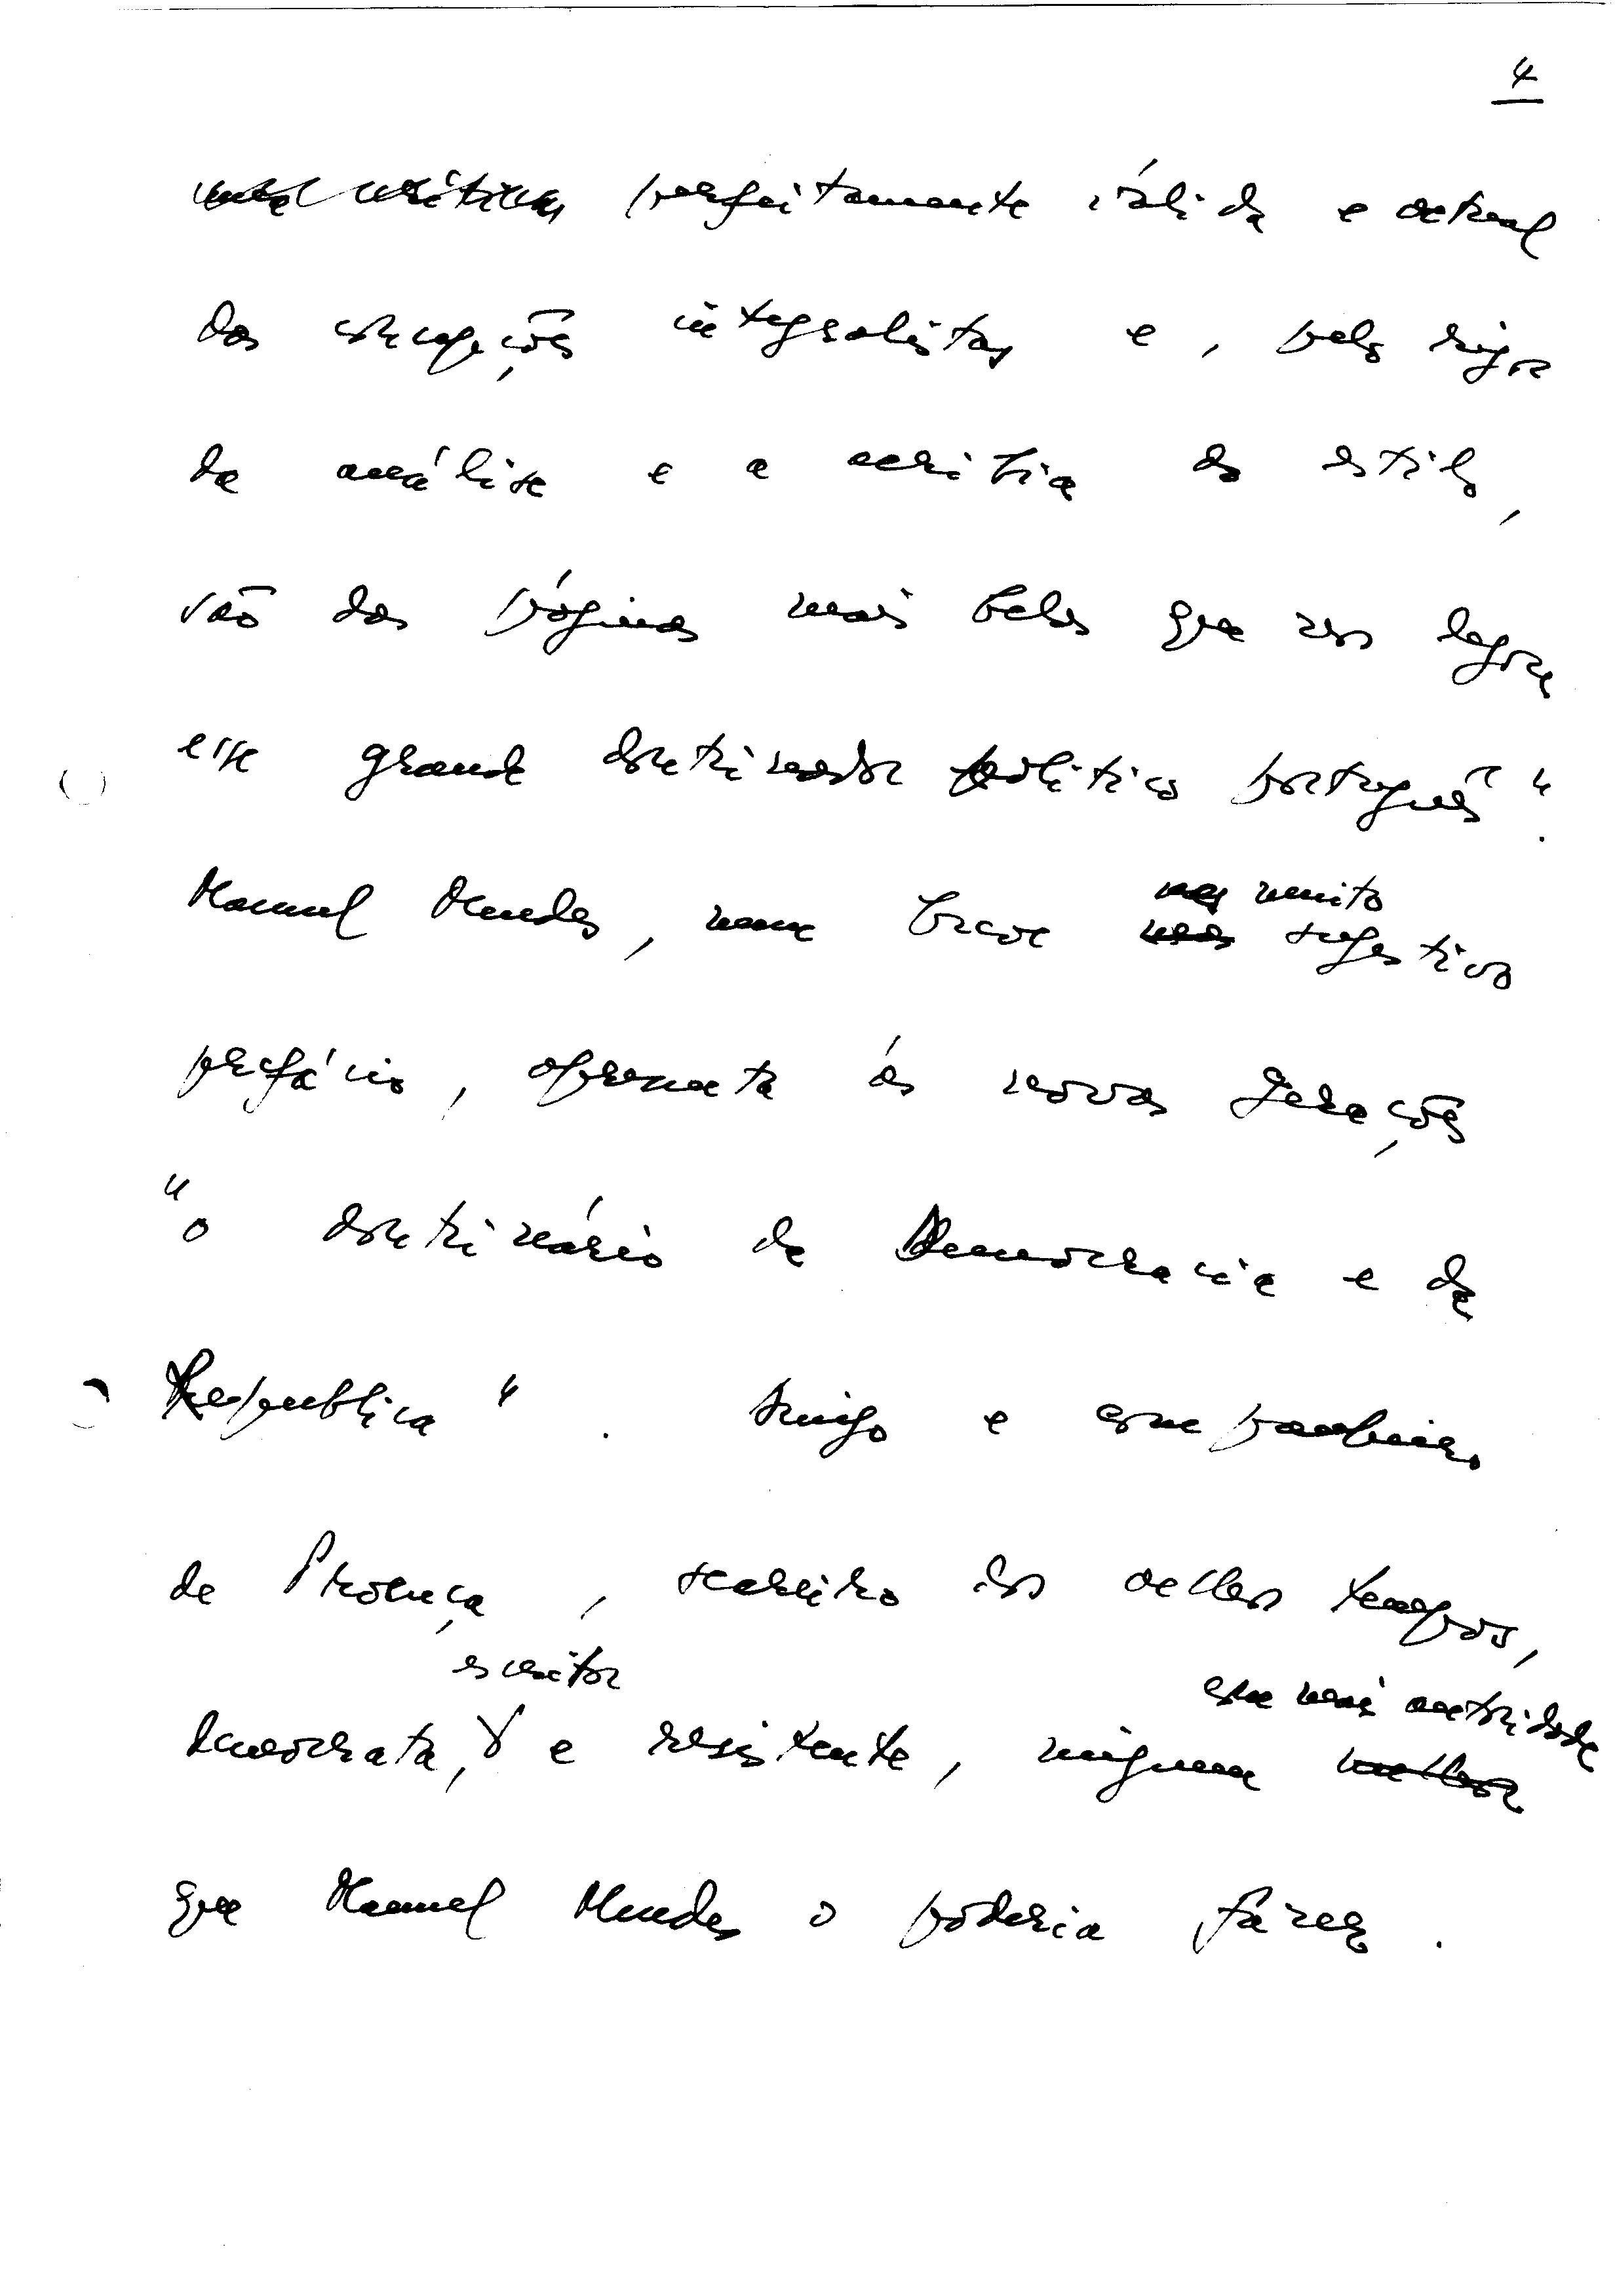 4
perfeitamente válida e actual
das concepções integralistas e, pelo rigor
da análise e a acribia do estilo,
são das páginas mais belas que nos legou
esse grande doutrinador político português".
Manuel Mendes, num breve mas muito sugestivo
prefácio, apresenta às novas gerações
"o doutrinário da Democracia e da
Republica". Amigo e companheiro
de Proença, seareiro dos velhos tempos,
democrata, escritor e resistente, ninguem com mais autoridade
que Manuel Mendes o poderia fazer.